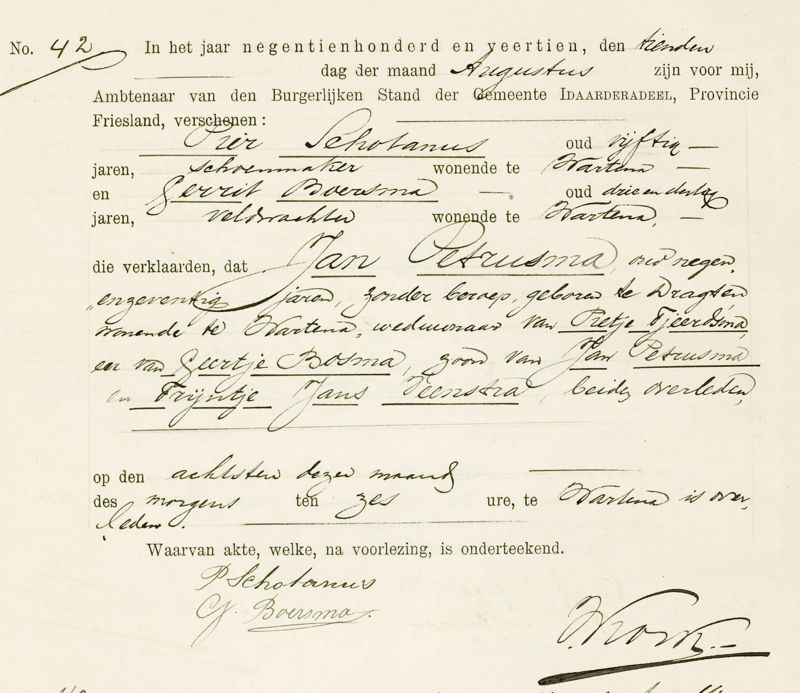 No. 42 In het jaar negentienhonderd en veertien, den tienden
dag der maand Augustus zijn voor mij,
Ambtenaar van den Burgerlijken Stand der Gemeente IDAARDERADEEL, Provincie
Friesland, verschenen:
Pier Schotanus oud vijftig
jaren, schoenmaker wonende te Wartena
en Gerrit Boersma oud drie en dertig
jaren, veldwachter wonende te Wartena,
die verklaarden, dat Jan Petrusma, oud negen
engeventig jaren, zonder beroep, geboren te Dragten,
wonende te Wartena, weduwnaar van Pietje Tjeerdsma,
en van Geertje Bosma, zoon van Jan Petrusma
en Trijntje Jans Veenstra, beiden overleden,
op den achtsten dezer maand
des morgens ten zes ure, te Wartena is over
leden.
Waarvan akte, welke, na voorlezing, is onderteekend.
P Schotanus
G. Boersma.